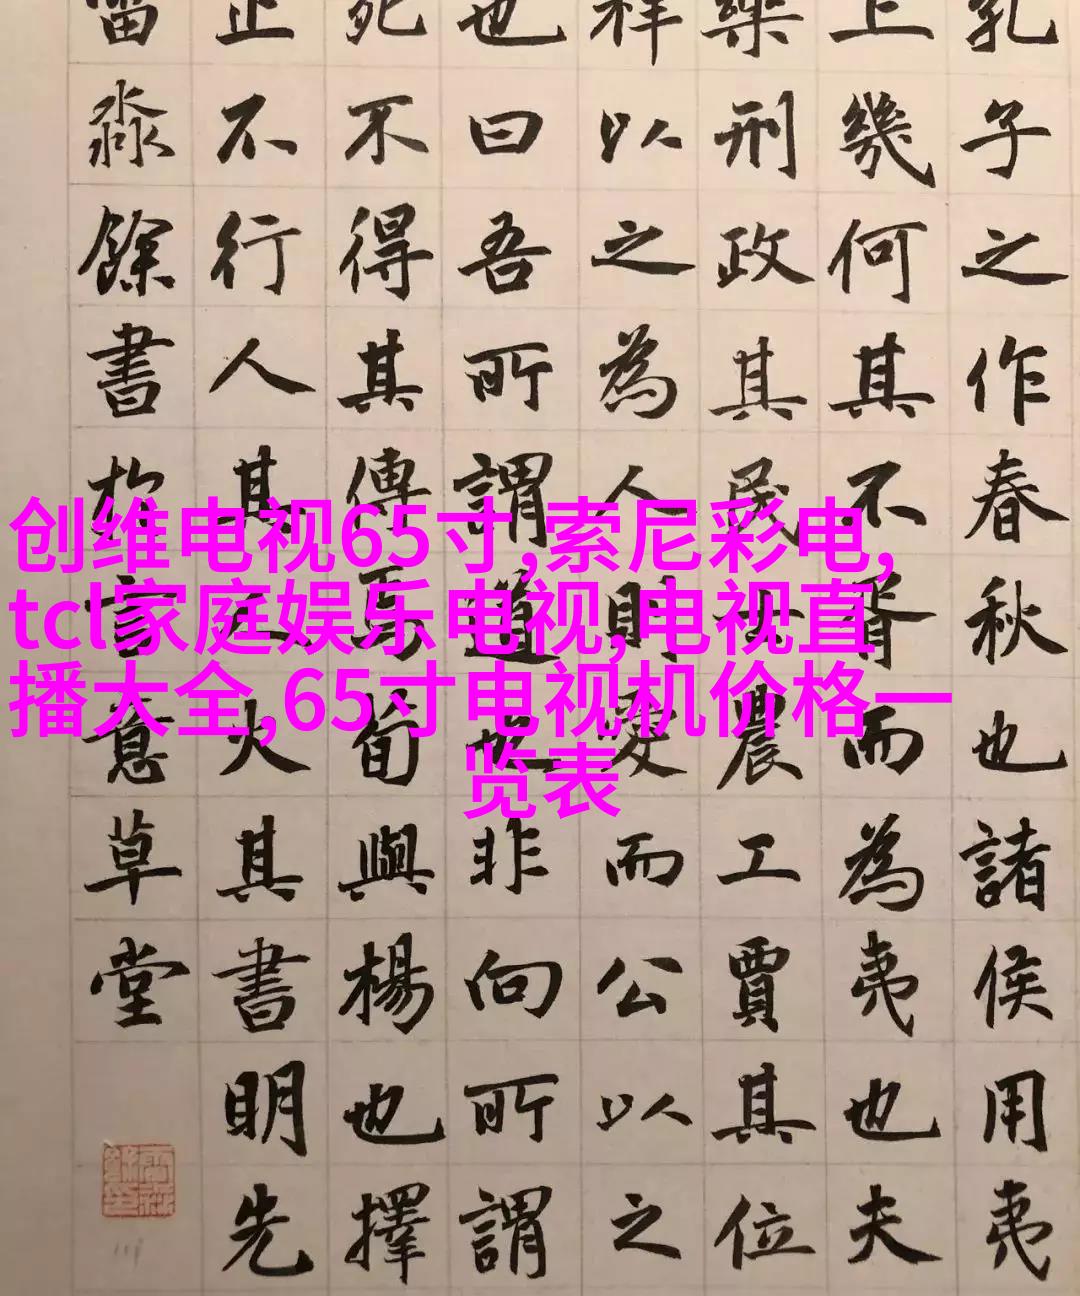 孔子之作春秋也諸侯用夷
上幾何其不胥而為夷也夫
樂刑政其民士農工賈其位
祥以之為人則愛而公以之
也曰吾所謂道也非向所謂
死不得其傳焉荀與楊也擇
止不行人其人火其書明先
淼餘書於意草堂
创维电视65寸,索尼彩电,
tcl家庭娱乐电视,电视直
播大全,65寸电视机价格一
览表